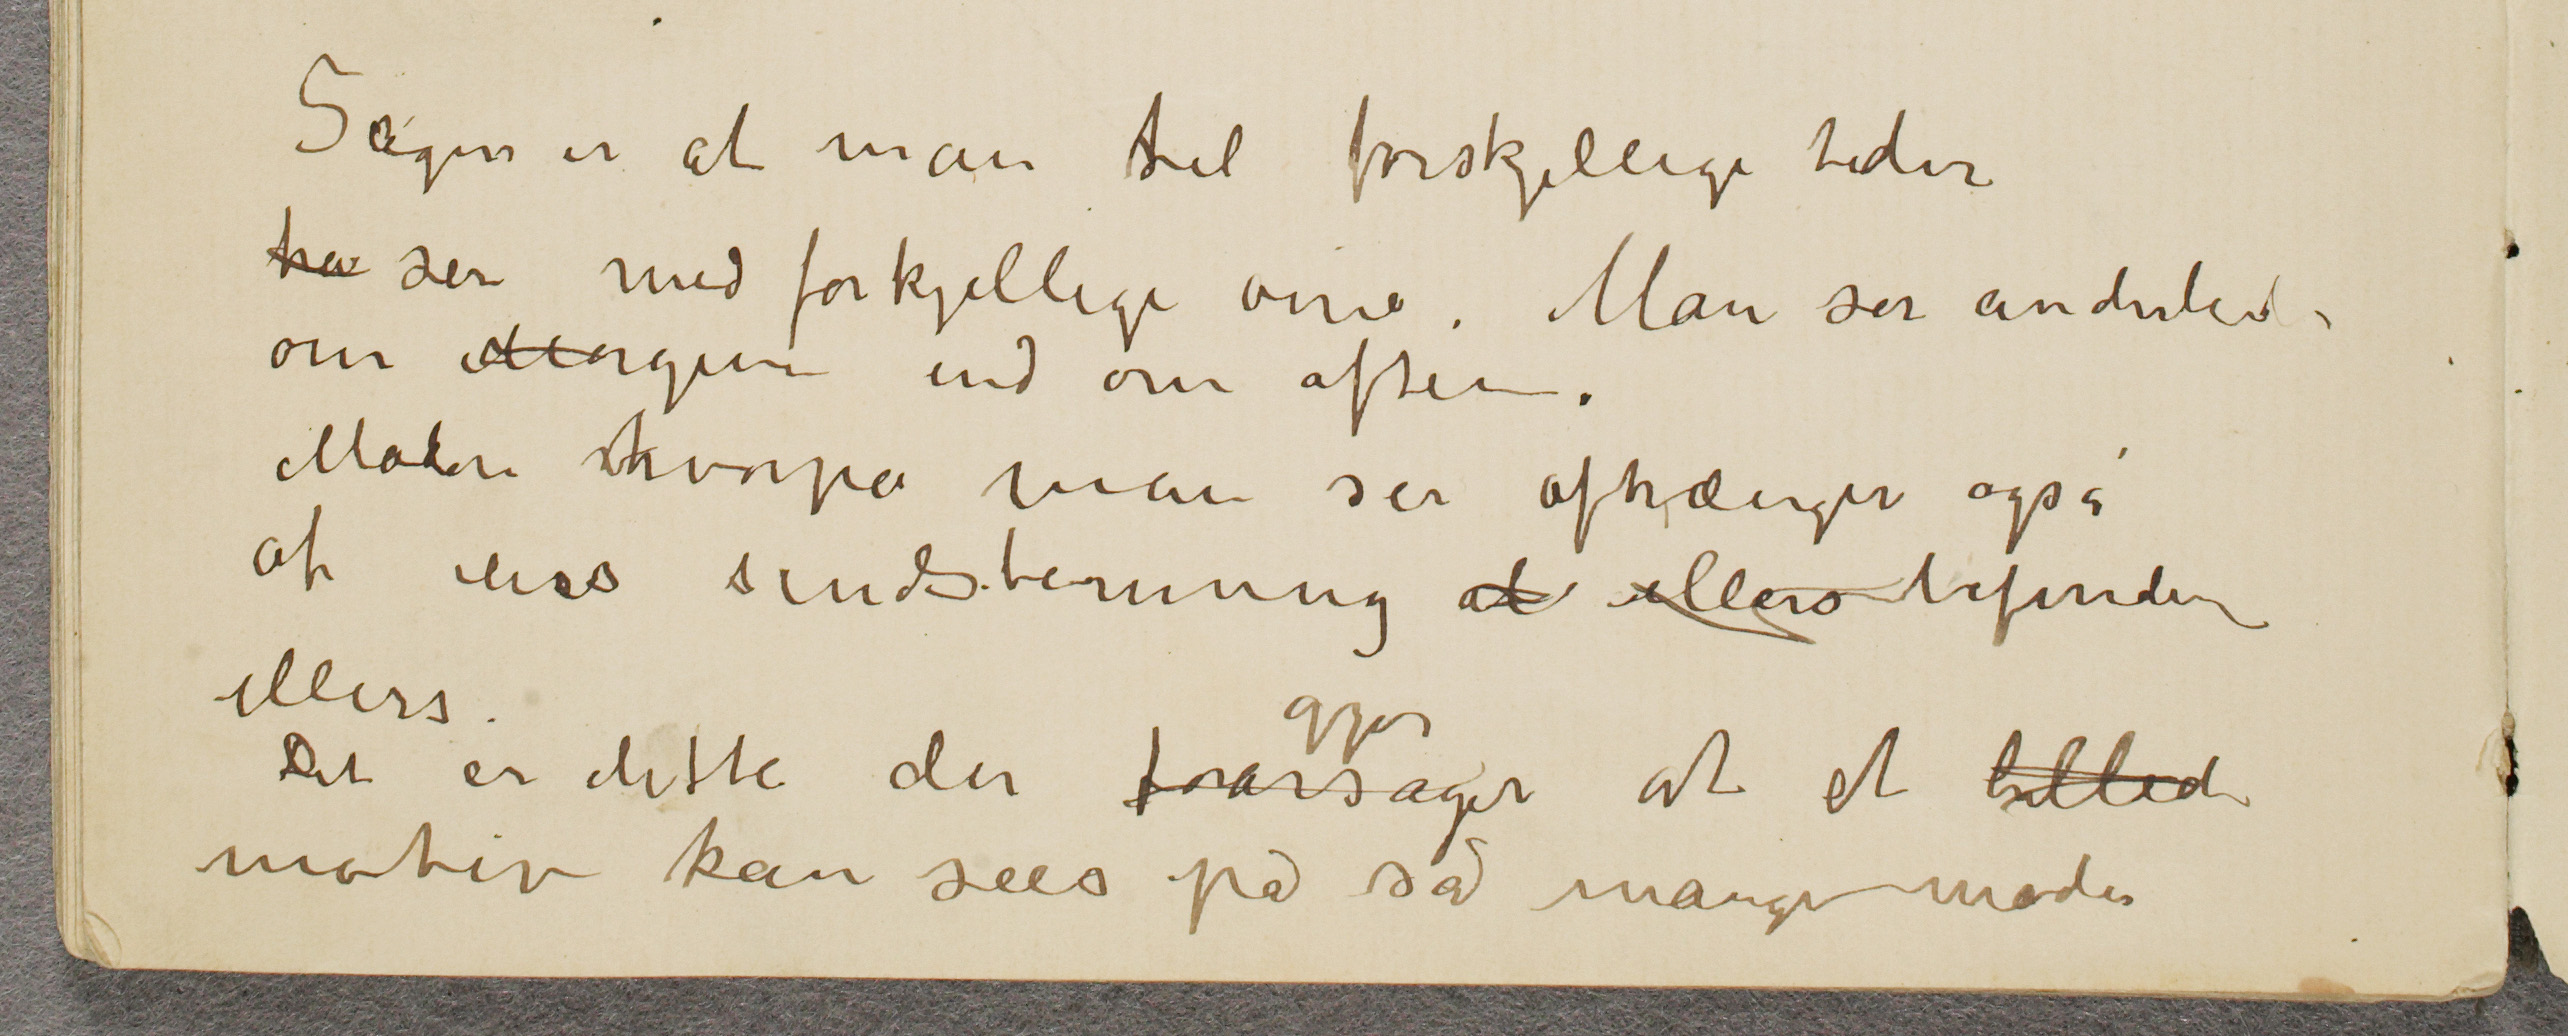 Sagen er at man til forskjellige tider
ha ser med forkjellige øine. Man ser anderled
om Morgenen end om aften.
Måden hvorpå man ser afhænger også
af ens sindstemning at ellers befinden
ellers.
gjør
Det er dette der foårsager at et billed
motiv kan sees på så mange måder